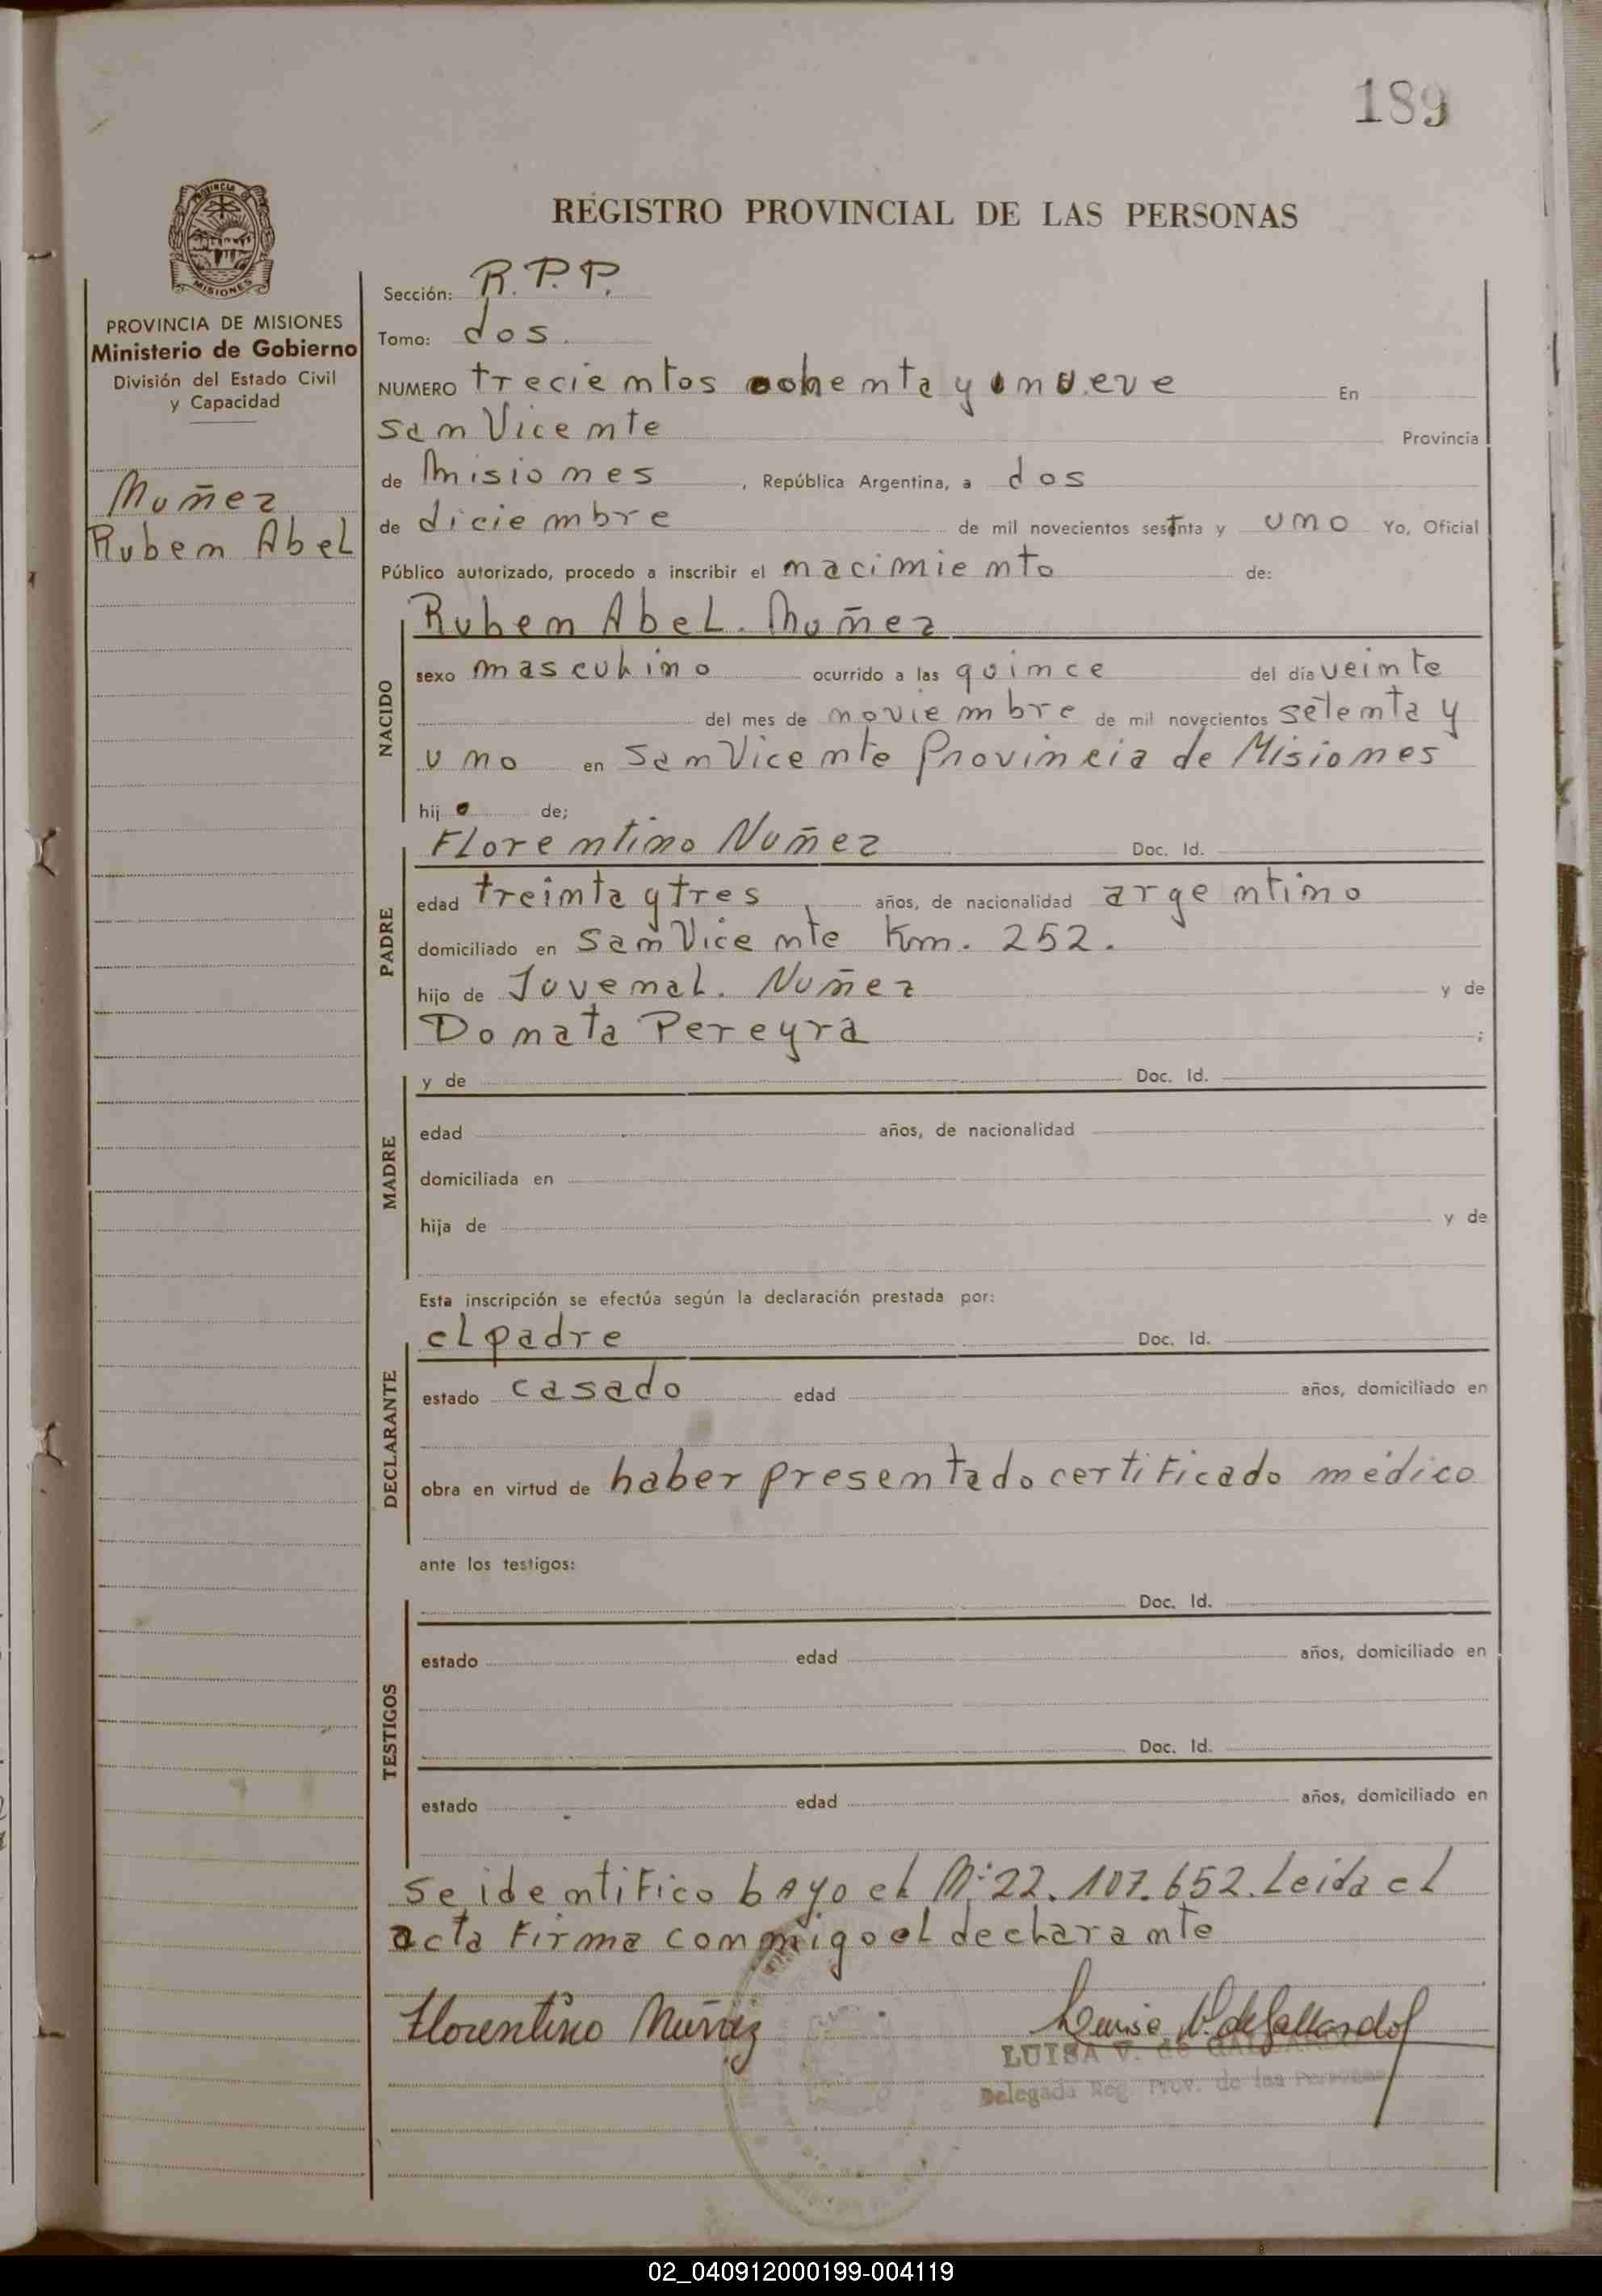 189
REGISTRO PROVINCIAL DE LAS PERSONAS
PROVINCIA DE MISIONES
Ministerio de Gobierno
División del Estado Civil
y Capacidad
Muñez
Ruben Abel
Sección: R.P.P.
Tomo: dos.
NUMERO trecientos ochenta y nueve En
San Vicente Provincia
de Misiones, República Argentina, a dos
de diciembre de mil novecientos setenta y uno Yo, Oficial
Público autorizado, procedo a inscribir el nacimiento de:
NACIDO
Ruben Abel. Muñez
sexo masculino ocurrido a las quince del día veinte
del mes de noviembre de mil novecientos setenta y
uno en San Vicente Provincia de Misiones
hijo de;
PADRE
Florentino Nuñez Doc. Id.
edad treinta y tres, años, de nacionalidad argentino
domiciliado en San Vicente Km. 252.
hijo de Juvenal. Nuñez y de
Donata Pereyra ;
MADRE
y de Doc. Id.
edad años, de nacionalidad
domiciliada en
hija de y de
Esta inscripción se efectúa según la declaración prestada por:
DECLARANTE
el padre Doc. Id.
estado casado edad años, domiciliado en
obra en virtud de haber presentado certificado médico
ante los testigos:
TESTIGOS
Doc. Id.
estado edad años, domiciliado en
Doc. Id.
estado edad años, domiciliado en
se identifico bayo el N: 22.107.652. Leida el
acta firma conmigo el declarante
Florentino Nuñez Luisa V. de Gallardo
LUISA V. de GALLARDO
Delegada Reg. Prov. de las Personas
02_040912000199-004119